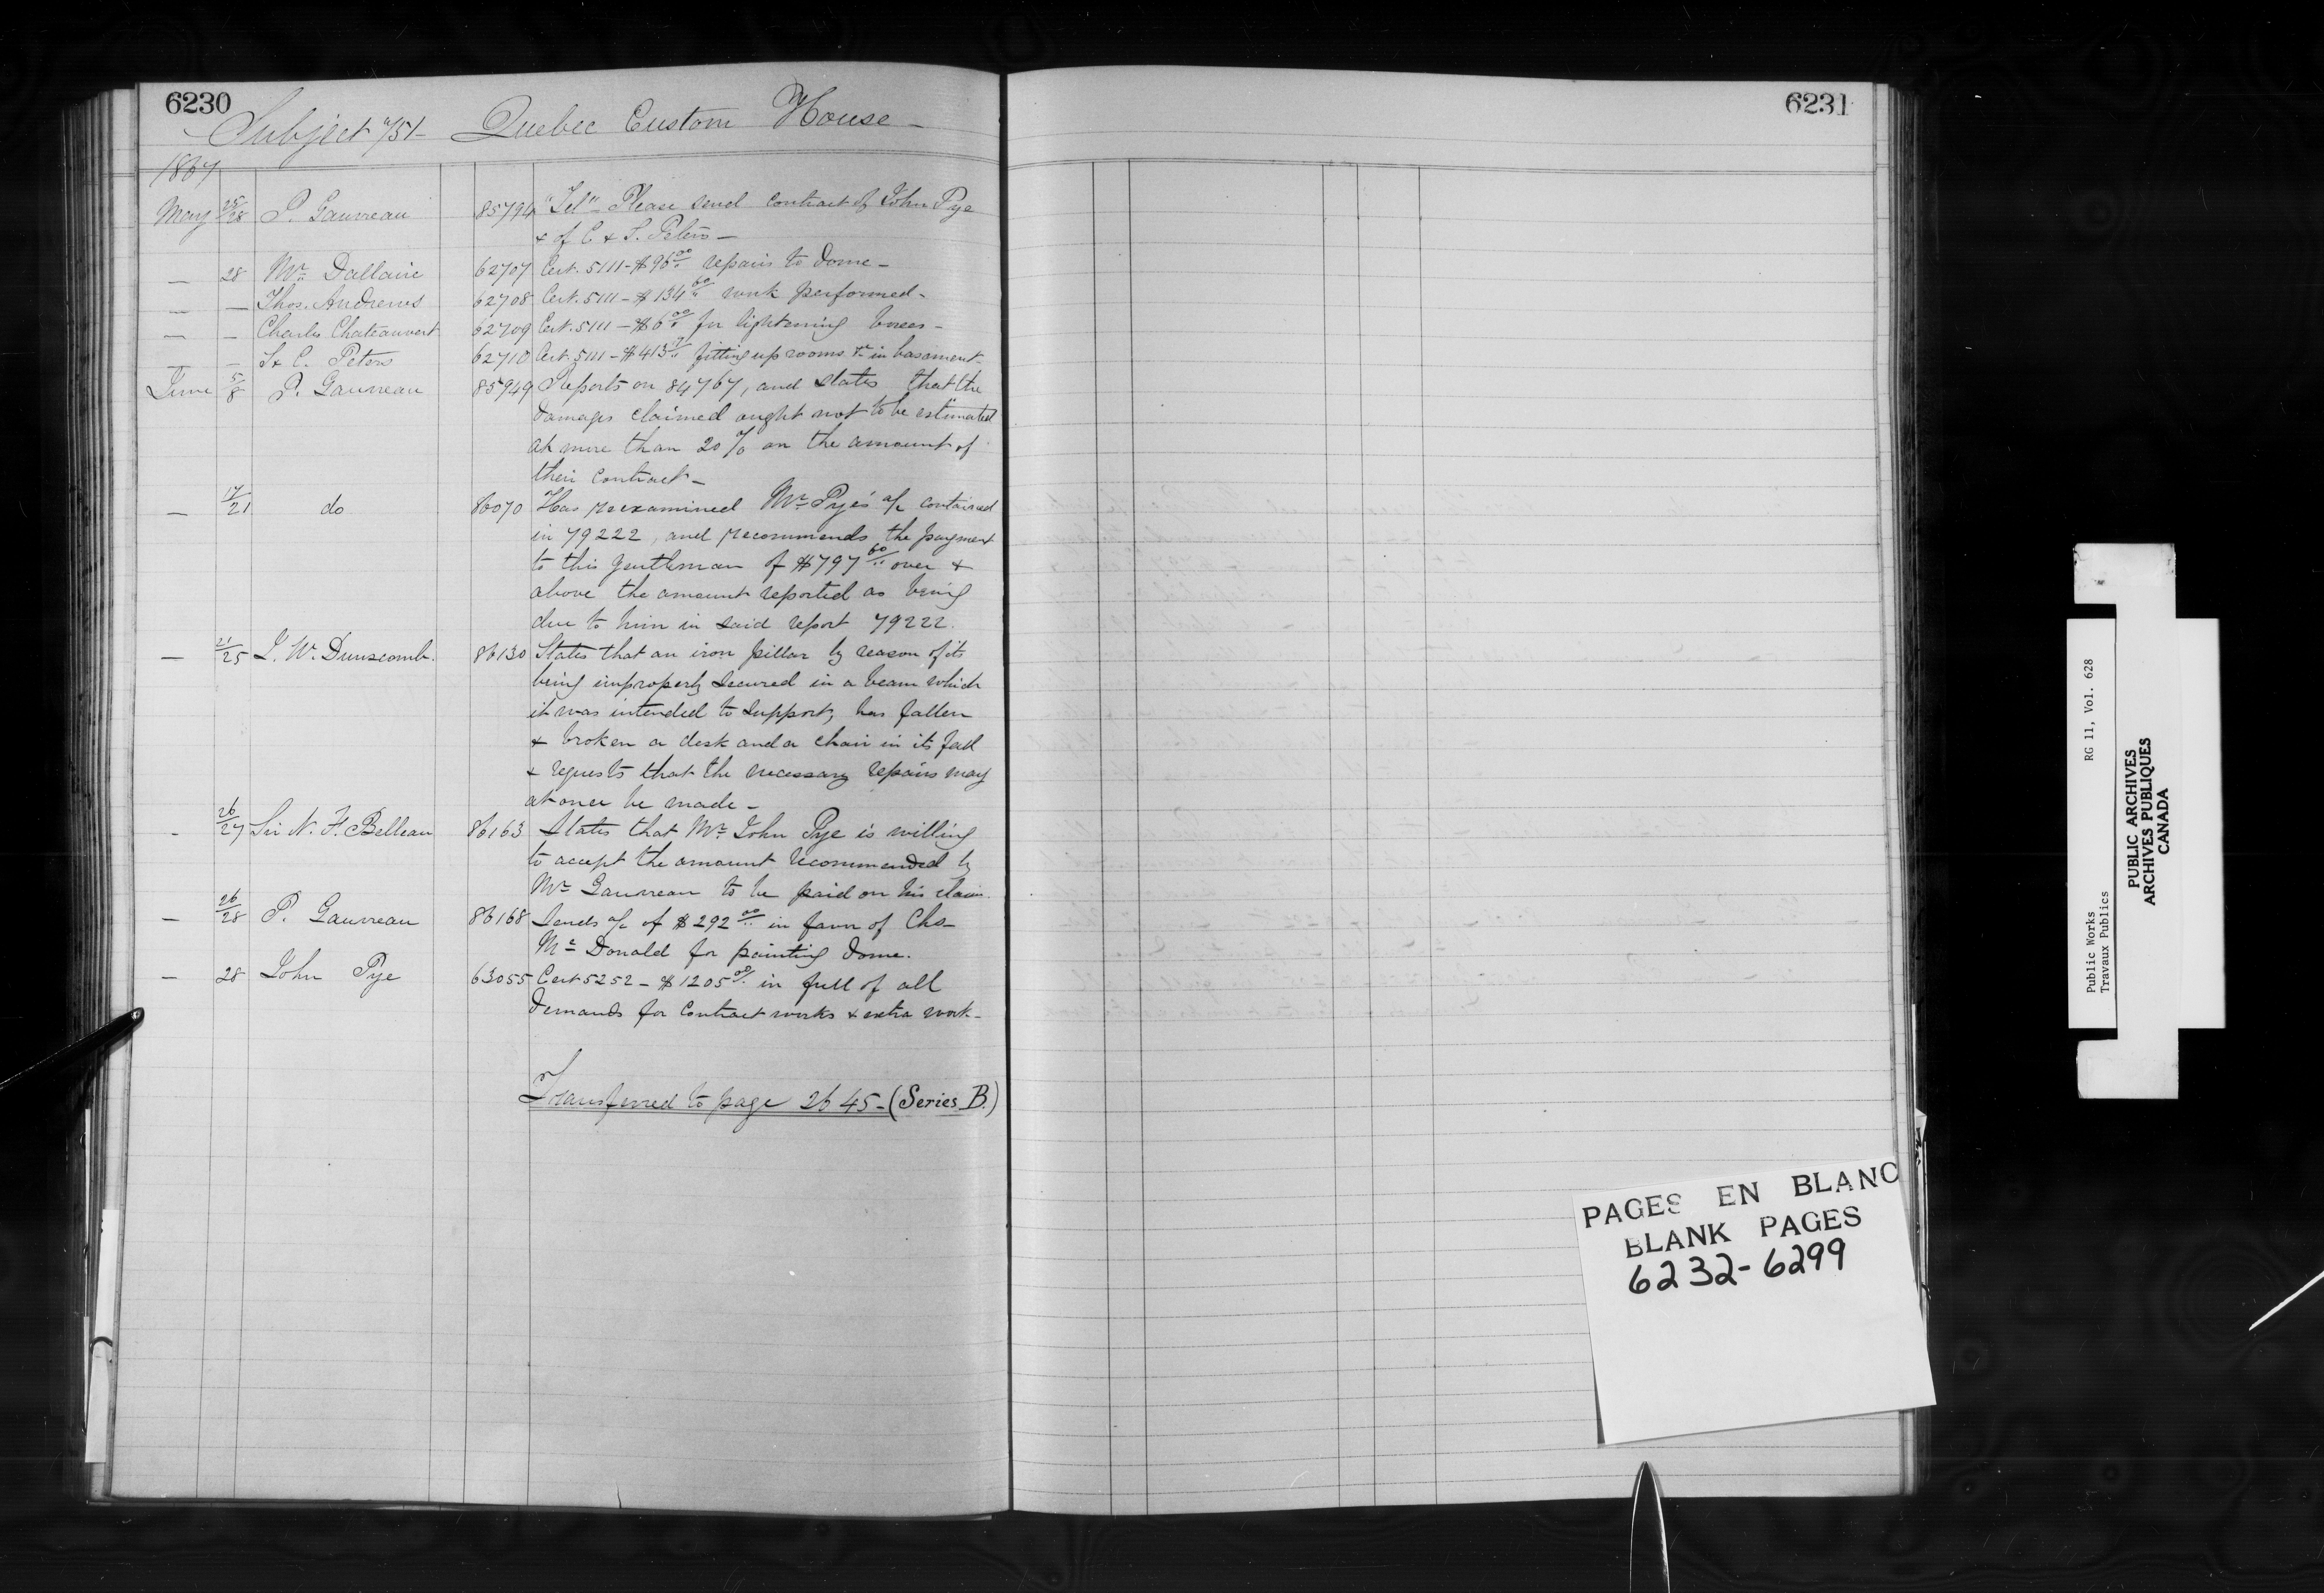 6230
Subject 751 - Quebec Custom House -
1867
May 25/28 P. Gauvreau 85794 "Tel" - Please send contract of John Pye
& of C & S. Peters -
— 28 Mr. Dallaire 62707 Cert. 5111 - $96 00/.. repairs to Dome -
— — Thos. Andrews 62708 Cert. 5111 - $134 60/.. work performed -
— — Charles Chateauvert 62709 Cert. 5111 - $6 00/.. for lightening
— — S & C. Peters 62710 Cert. 5111 - $413 17/.. fitting up rooms &c in basement -
June 5/8 P. Gauvreau 85949 Reports on 84767, and states that the
damages claimed ought not to be estimated
at more than 20 % on the amount of
their contract -
— 17/21 do 86070 Has reexamined Mr. Pye's a/c contained
in 79222, and recommends the payment
to this gentleman of $797 60/.. over &
above the amount reported as being
due to him in said report 79222.
— 21/25 J. W. Dunscomb. 86130 States that an iron pillar by reason of its
being improperly secured in a beam which
it was intended to support, has fallen
& broken a desk and a chair in its fall
& requests that the necessary repairs may
at once be made -
- 26/27 Sir N. F. Belleau 86163 States that Mr. John Pye is willing
to accept the amount recommended by
Mr. Gauvreau to be paid on his claim.
— 26/28 P. Gauvreau 86168 Sends a/c of $292 00/.. in favor of Chs-
Mc Donald for painting Dome.
— 28 John Pye 63055 Cert 5252 - $1205 00/.. in full of all
Demands for Contract works & extra work -
Transferred to page 2645 - (Series B.)
6231
PAGES EN BLANC
BLANK PAGES
6232-6299
Public Works RG 11, Vol. 628
Travaux Publics
PUBLIC ARCHIVES
ARCHIVES PUBLIQUES
CANADA